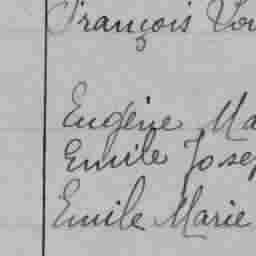 François
Eugène
Emile
Emile Marie